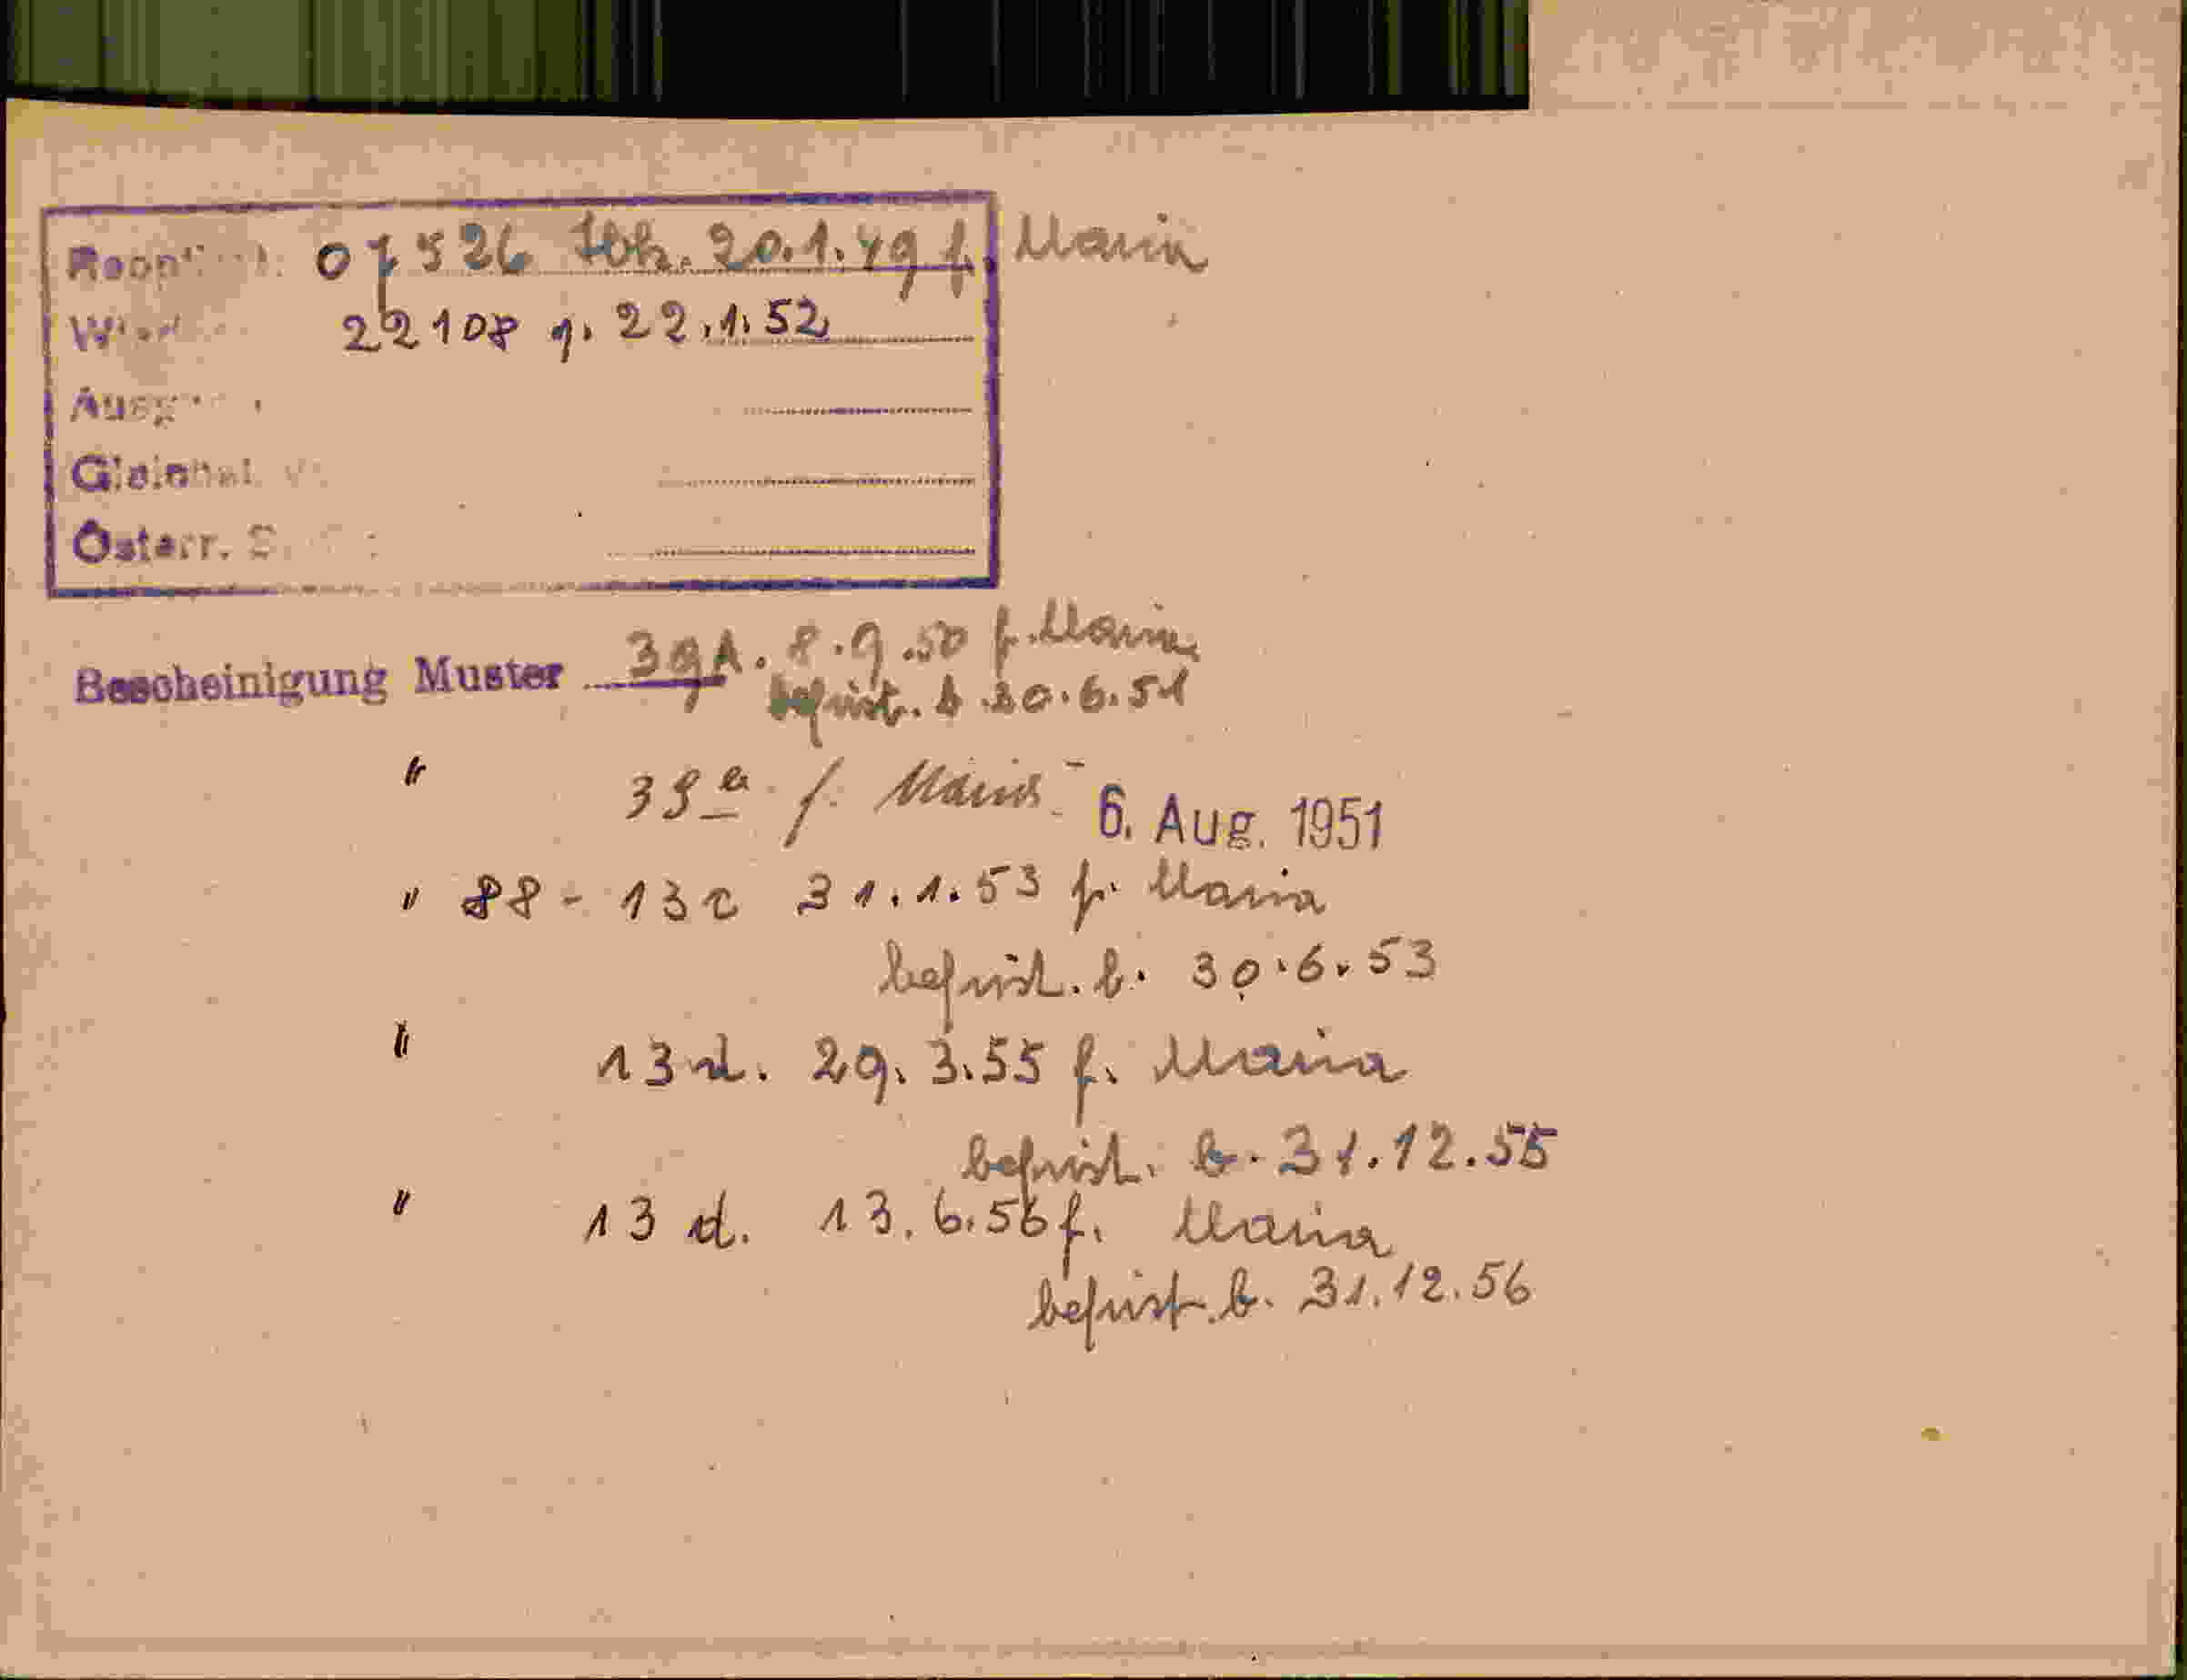 07526 20.1.49 f. Maria
22108 g. 22.1.52
Österr.
Bescheinigung Muster 39A. 8.9.50 f. Maria
befrist. b. 30.6.51
" 39a f. Maria 6. Aug. 1951
" 88 - 13c 31.1.53 f. Maria
befrist. b. 30.6.53
" 13d. 29.3.55 f. Maria
befrist. b. 31.12.55
" 13 d. 13.6.56 f. Maria
befrist. b. 31.12.56